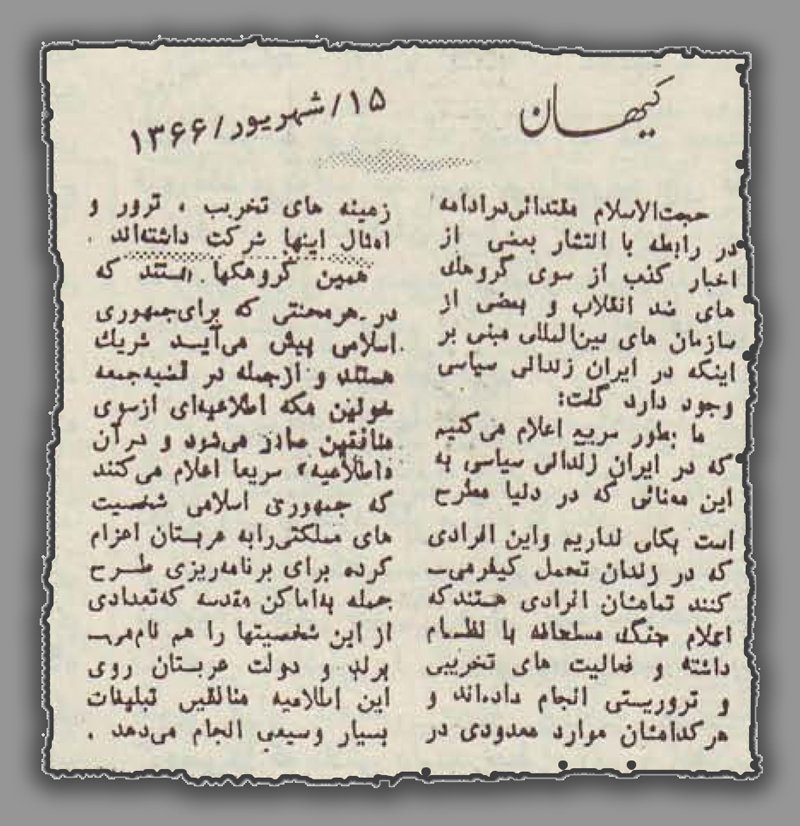 کیهان
۱۵/شهریور/۱۳۶۶
حجت‌الاسلام مقتدائی درادامه
در رابطه با انتشار بعضی از
اخبار کذب از سوی گروههای
های ضد انقلاب و بعضی از
سازمان های بین‌المللی مبنی بر
اینکه در ایران زندانی سیاسی
وجود دارد گفت:
ما بطور سریع اعلام می‌کنیم
که در ایران زندانی سیاسی به
این معنائی که در دنیا مطرح
است بکلی نداریم واین افرادی
که در زندان تحمل کیفرمی‌ـ
کنند تمامشان افرادی هستندکه
اعلام جنگ مسلحانه با نظام
داشته و فعالیت های تخریبی
و تروریستی انجام داده‌اند و
هرکدامشان موارد معدودی در
زمینه های تخریب ، ترور و
امثال اینها شرکت داشته‌اند .
همین گروهکها هستند که
در هرمحنتی که برای‌جمهوری
اسلامی پیش می‌آیـد شریک
هستند و ازجمله در قضیه‌جمعه
خونین مکه اطلاعیه‌ای ازسوی
منافقین صادر می‌شود و درآن
«اطلاعیه» سریعا اعلام می‌کنند
که جمهوری اسلامی شخصیت
های مملکتی‌رابه عربستان اعزام
کرده برای برنامه‌ریزی طـرح
حمله به‌اماکن مقدسه که‌تعدادی
از این شخصیتها را هم نام‌می‌ـ
برند و دولت عربستان روی
این اطلاعیه منافقین تبلیغات
بسیار وسیعی انجام می‌دهد .